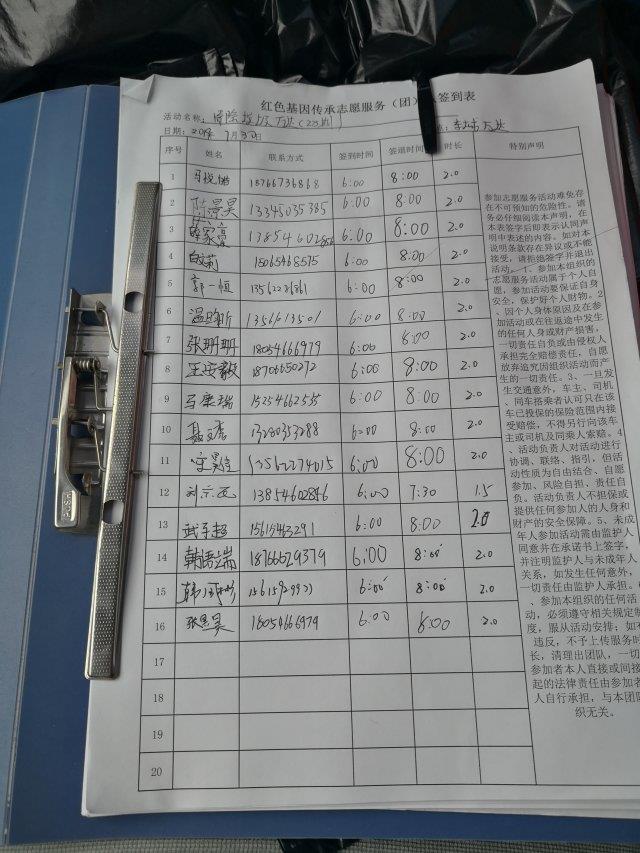 红色基因传承志愿服务（团）签到表
活动名称： 万达(2)
日期: 2019年 7月3日
序号 姓名 联系方式 签到时间 签退时间 时长 特别声明
1 18766736868 6:00 8:00 2.0
2 13345035385 6:00 8:00 2.0
3 6:00 8:00 2.0
4 15065468575 6:00 8:00 2.0
5 郭一恒 6:00 8:00 2.0
6 6:00 8:00 2.0
7 张珊珊 18054666979 6:00 8:00 2.0
8 18706650272 6:00 8:00 2.0
9 马康瑞 15254662555 6:00 8:00 2.0
10 13280353288 6:00 8:00 2.0
11 13562274015 6:00 8:00 2.0
12 13854602846 6:00 7:30 1.5
13 武子超 6:00 8:00 2.0
14 18766629379 6:00 8:00 2.0
15 6:00 8:00 2.0
16 张景昊 18054666979 6:00 8:00 2.0
17
18
19
20
参加志愿服务活动难免存
在不可预知的危险性。请
务必仔细阅读本声明，在
本表签字后即表示认同声
明中表述的内容。如对本
说明条款存在异议或不能
接受，请拒绝签字并退出
活动。1、参加本组织的
志愿服务活动属于个人自
愿，参加活动要保证自身
安全，保护好个人财物。2
、因个人身体原因及在参
加活动或在往返途中发生
的任何人身或财产损害，
一切责任自负或由侵权人
承担完全赔偿责任，自愿
放弃追究因组织活动而产
生的一切责任。3、一旦发
生交通意外，车主、司机
、同车搭乘者认可只在该
车已投保的保险范围内接
受赔偿，不得另行向该车
主或司机及同乘人索赔。4
、活动负责人对活动进行
协调、联络、指引，但活
动性质为自由结合、自愿
参加、风险自担、责任自
负。活动负责人不担保或
提供任何参加人的人身和
财产的安全保障。5、未成
年人参加活动需由监护人
同意并在承诺书上签字，
并注明监护人与未成年人
关系，如发生任何意外，
一切责任由监护人承担。6
、参加本组织的任何活
动，必须遵守相关规定制
度，服从活动安排；如有
违反，不予上传服务时
长，清理出团队，一切
参加者本人直接或间接
起的法律责任由参加者
人自行承担，与本团队
织无关。